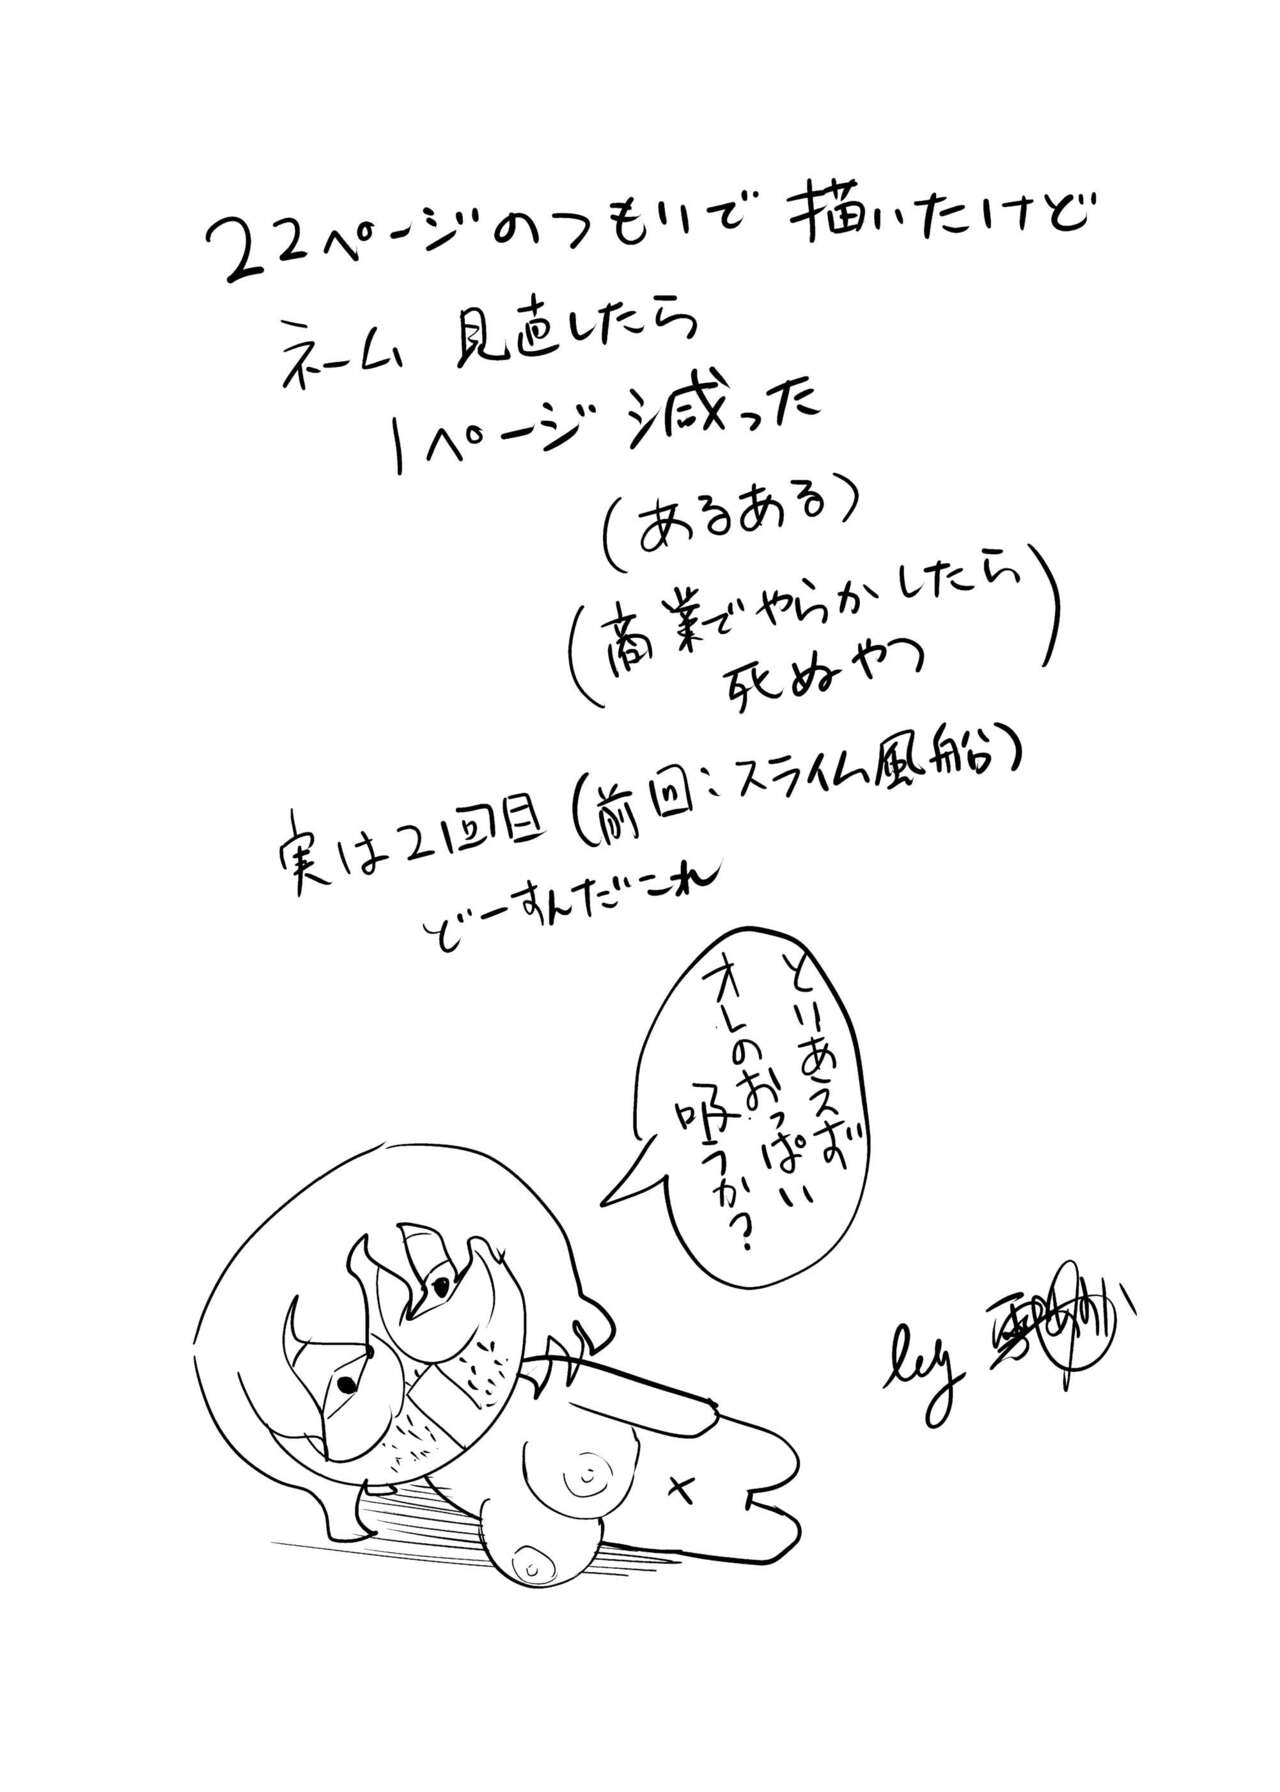 22ページのつもりで描いたけど
ネーム 見直したら
1ページ減った
(あるある)
(商業でやらかしたら
死ぬやつ)
実は2回目(前回:スライム風船)
どーすんだこれ
とりあえず
オレのおっぱい
吸うか?
by